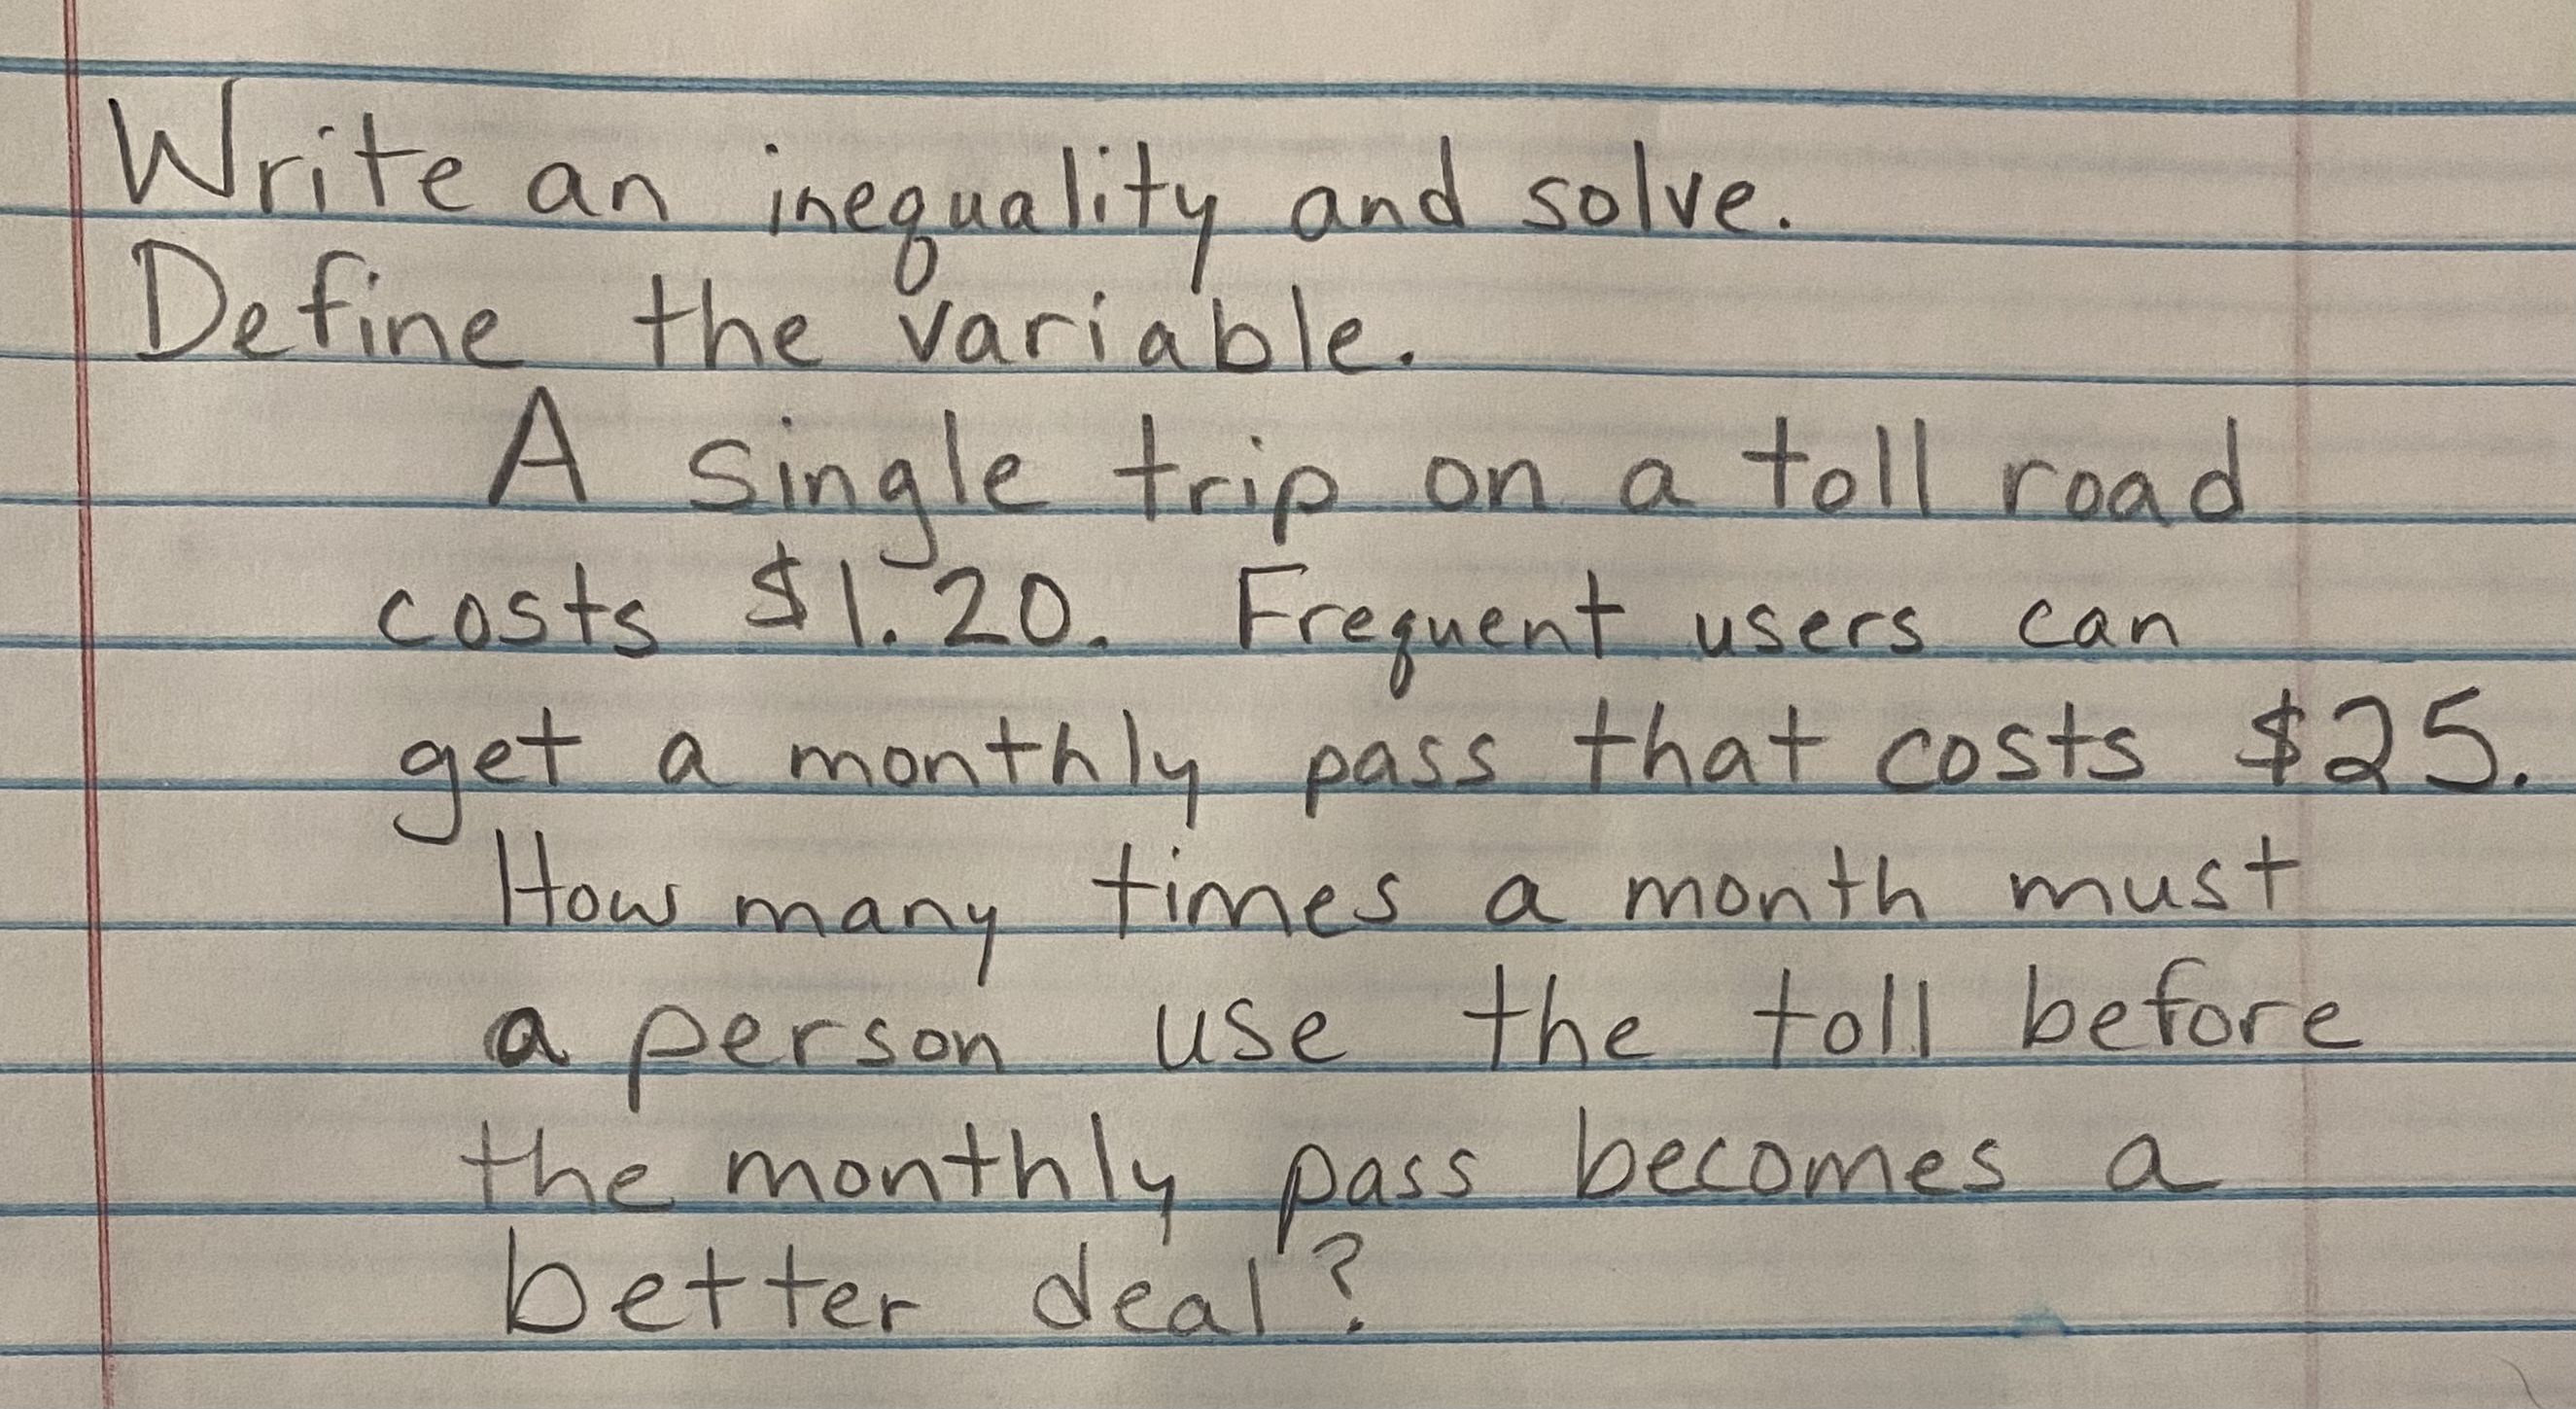 Write an inequality and solve.
Define the variable.
A single trip on a toll road
costs $1.20. Frequent users can
get a monthly pass that costs $25.
How many times a month must
a person use the toll before
the monthly pass becomes a
better deal?